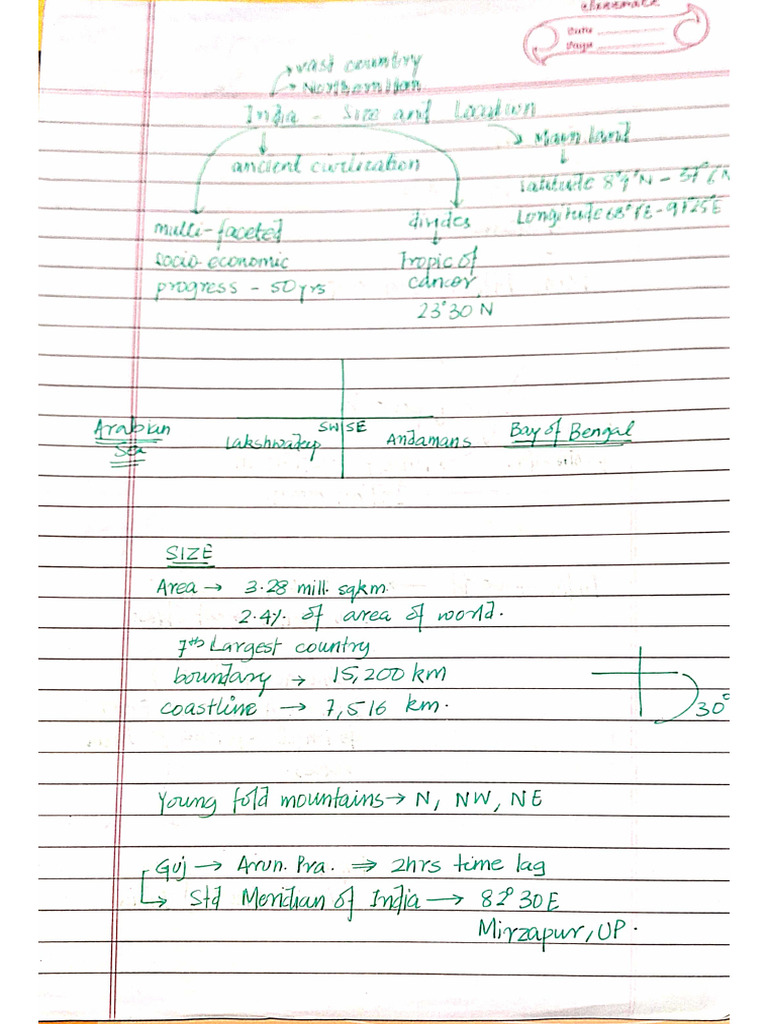 classmate
Date
Page
→ vast country
→ Northern Hem
India - Size and Location
→ Main land
ancient civilization
Latitude 8°4'N - 37°6'N
Longitude 68°7'E - 97°25'E
multi-faceted
socio economic
progress - 50 yrs
divides
Tropic of
cancer
23°30 N
Arabian
Sea
Lakshwadeep
SW SE
Andamans
Bay of Bengal
SIZE
Area → 3.28 mill. sqkm.
2.4% of area of world.
7th Largest country
boundary → 15,200 km
coastline → 7,516 km.
30°
Young fold mountains → N, NW, NE
Guj → Arun. Pra. ⇒ 2hrs time lag
→ Std Meridian of India → 82°30E
Mirzapur, UP.